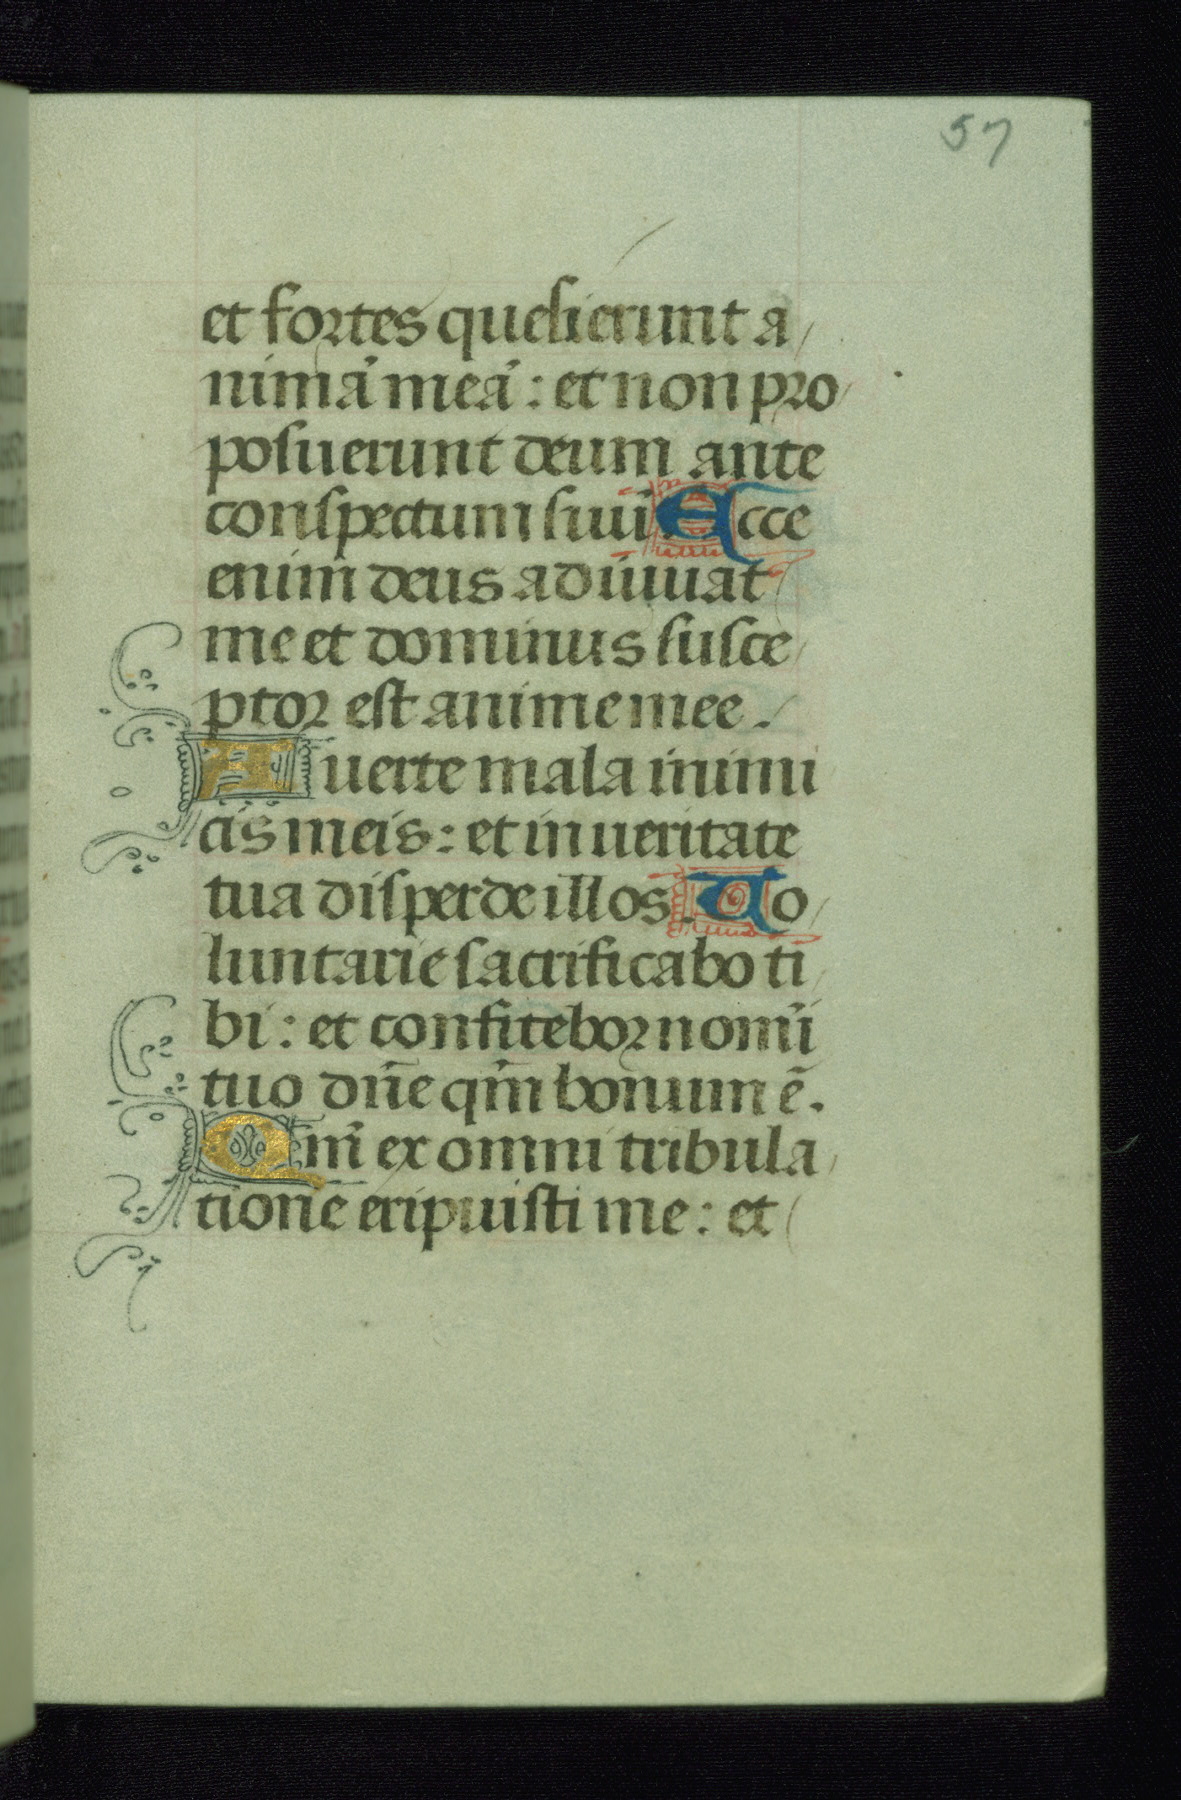 57
et fortes quesierunt a
nimā meā: et non pro
posuerunt deum ante
conspectum suū Ecce
enim deus adiuuat
me et dominus susce
ptor est anime mee.
Auerte mala inimi
cis meis: et in ueritate
tua disperde illos. Uo
luntarie sacrificabo ti
bi: et confitebor nomī
tuo dn̄e qm̄ bonum ē.
Qm̄ ex omni tribula
tione eripuisti me: et